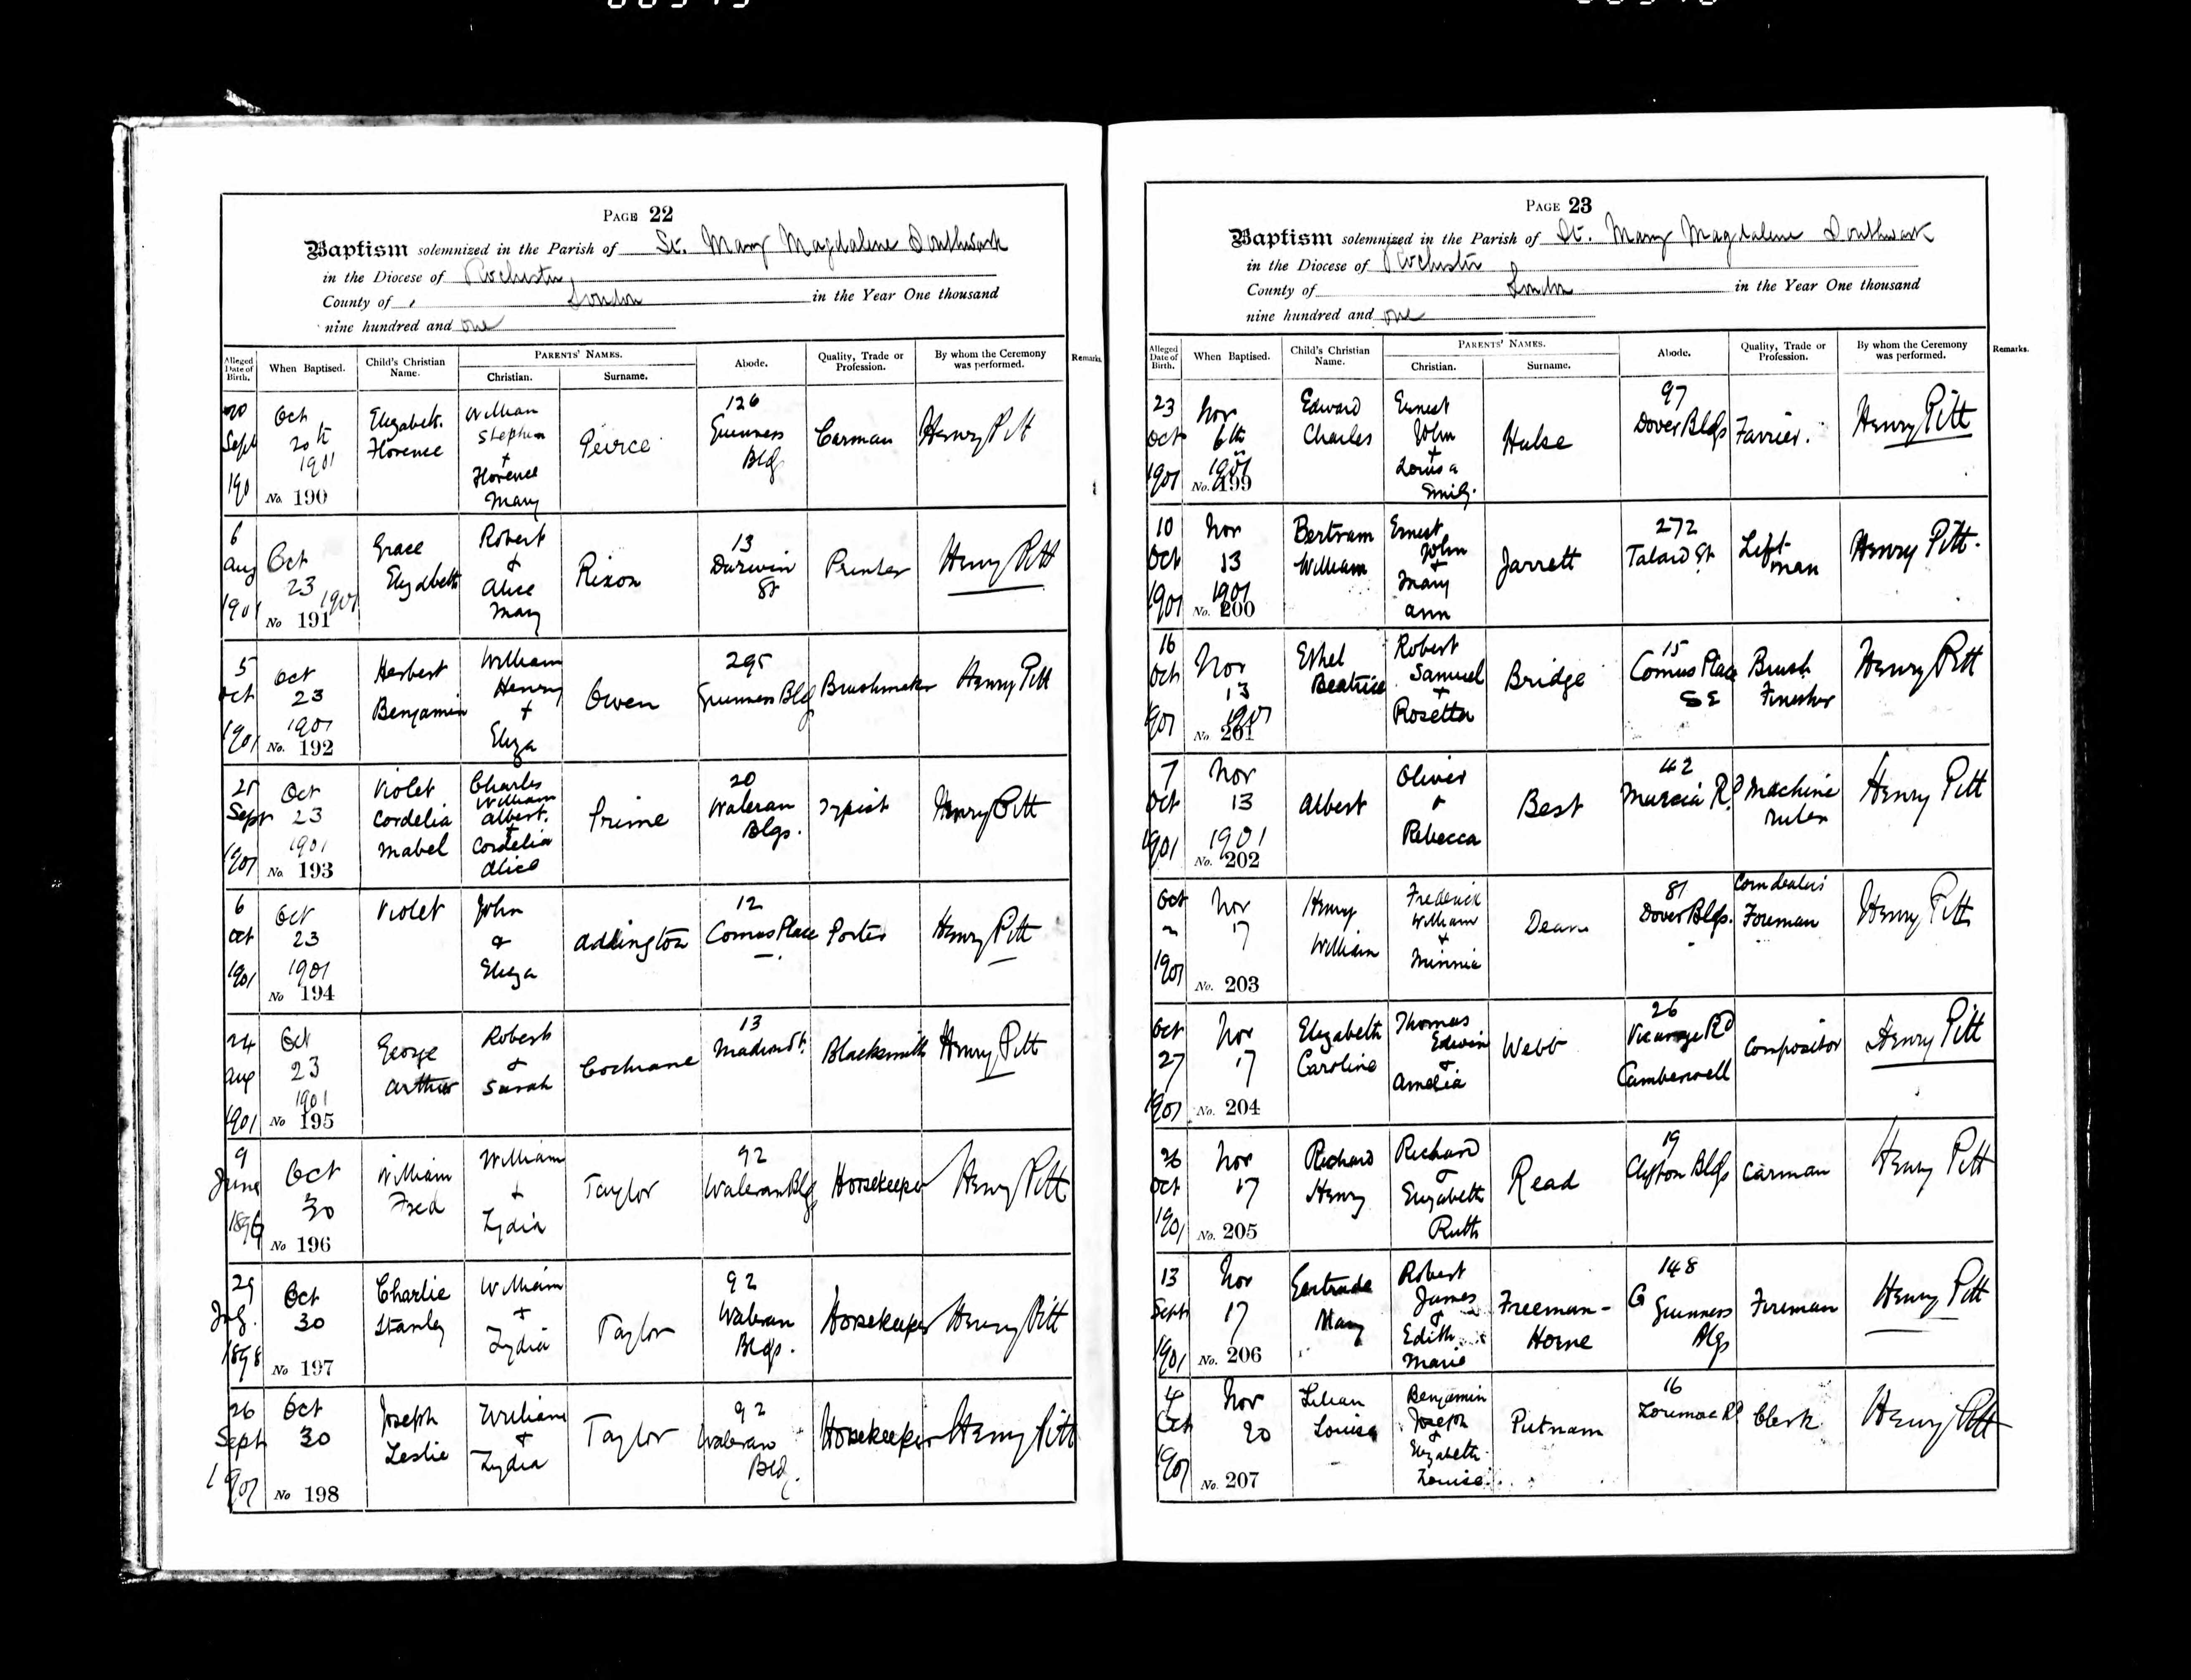 PAGE 22
Baptism solemnized in the Parish of St. Mary Magdalene Southwark
in the Diocese of Rochester
County of London in the Year One thousand
nine hundred and one
Alleged Date of Birth. When Baptised. Child's Christian Name. PARENTS' NAMES. Christian. Surname. Abode. Quality, Trade or Profession. By whom the Ceremony was performed. Remarks.
20 Sept 190 Oct 20th 1901 No. 190 Elizabeth Florence William Stephen + Florence Mary Peirce 126 Guinness Bldg Carman Henry Pitt
6 Aug 1901 Oct 23 1901 No 191 Grace Elizabeth Robert & Alice Mary Rixon 13 Darwin St Printer Henry Pitt
5 Oct 1901 Oct 23 1901 No. 192 Herbert Benjamin William Henry + Eliza Owen 295 Guinness Bldg Brushmaker Henry Pitt
25 Sept 1901 Oct 23 1901 No. 193 Violet Cordelia Mabel Charles William Albert + Cordelia Alice Prime 20 Waleran Blgs. Typist Henry Pitt
6 Oct 1901 Oct 23 1901 No 194 Violet John & Eliza Addington 12 Comus Place Porter Henry Pitt
24 Aug 1901 Oct 23 1901 No 195 George Arthur Robert & Sarah Cochrane 13 Madron St. Blacksmith Henry Pitt
9 June Oct 30 No 196 William Fred William + Lydia Taylor 92 Waleran Blg Horsekeeper Henry Pitt
29 July 1898 Oct 30 No 197 Charlie Stanley William + Lydia Taylor 92 Waleran Blgs. Horsekeeper Henry Pitt
26 Sept 1901 Oct 30 No 198 Joseph Leslie William + Lydia Taylor 92 Waleran Bld. Horsekeeper Henry Pitt
PAGE 23
Baptism solemnized in the Parish of St. Mary Magdalene Southwark
in the Diocese of Rochester
County of London in the Year One thousand
nine hundred and one
Alleged Date of Birth. When Baptised. Child's Christian Name. PARENTS' NAMES. Christian. Surname. Abode. Quality, Trade or Profession. By whom the Ceremony was performed. Remarks.
23 Oct 1901 Nov 6th 1901 No. 199 Edward Charles Ernest John + Louisa Emily. Hulse 97 Dover Bldgs Farrier. Henry Pitt
10 Oct 1901 Nov 13 1901 No. 200 Bertram William Ernest John + Mary Ann Jarrett 272 Tabard St Lift-man Henry Pitt.
16 Oct 1901 Nov 13 1901 No 201 Ethel Beatrice Robert Samuel + Rosetta Bridge 15 Comus Place SE Brush Finisher Henry Pitt
7 Oct 1901 Nov 13 1901 No. 202 Albert Oliver & Rebecca Best 42 Marcia Rd Machine ruler Henry Pitt
Oct 1901 Nov 17 No. 203 Henry William Frederick William + Minnie Dean 81 Dover Blgs. Corndealers Foreman Henry Pitt
Oct 27 1901 Nov 17 No. 204 Elizabeth Caroline Thomas Edwin & Amelia Webb 26 Vicarage Rd Camberwell Compositor Henry Pitt
26 Oct 1901 Nov 17 No. 205 Richard Henry Richard & Elizabeth Ruth Read 19 Clifton Bldgs Carman Henry Pitt
13 Sept 1901 Nov 17 No. 206 Gertrude Mary Robert James & Edith Marie Freeman-Horne 148 G Guinness Blgs Fireman Henry Pitt
4 Oct 1901 Nov 20 No. 207 Lilian Louisa Benjamin Joseph & Elizabeth Louisa Putnam 16 Lorrimore Rd Clerk Henry Pitt